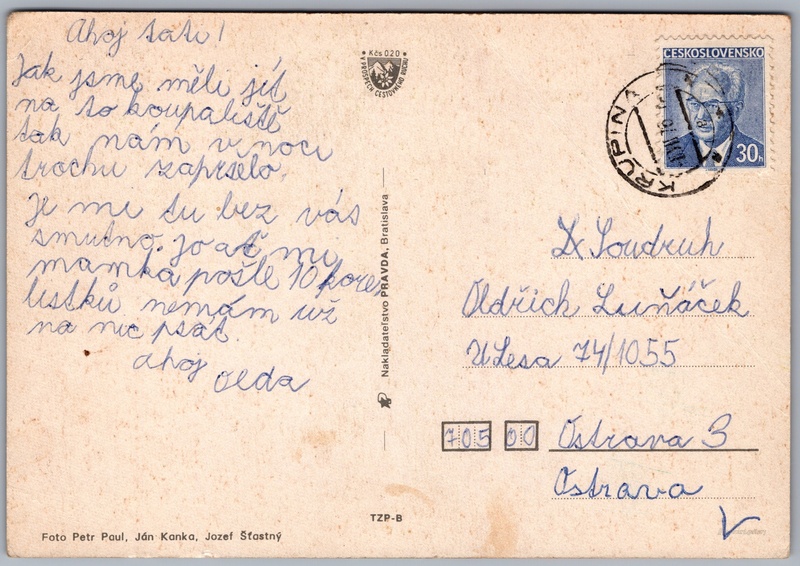 Ahoj tati!
Jak jsme měli jít
na to koupaliště
tak nám v noci
trochu zaprselo.
Je mi tu bez vás
smutno. jo ať mi
mamka pošle 10 kores
listků nemám už
na nic psát.
ahoj
Olda
Kčs 0.20
V PROSPĚCH CESTOVNÉHO RUCHU
Nakladateľstvo PRAVDA, Bratislava
TZP-B
Foto Petr Paul, Ján Kanka, Jozef Šťastný
ČESKOSLOVENSKO
30h
KRUPINA
Soudruh
Oldřich Luňáček
U Lesa 74/1055
705 00
Ostrava 3
Ostrava